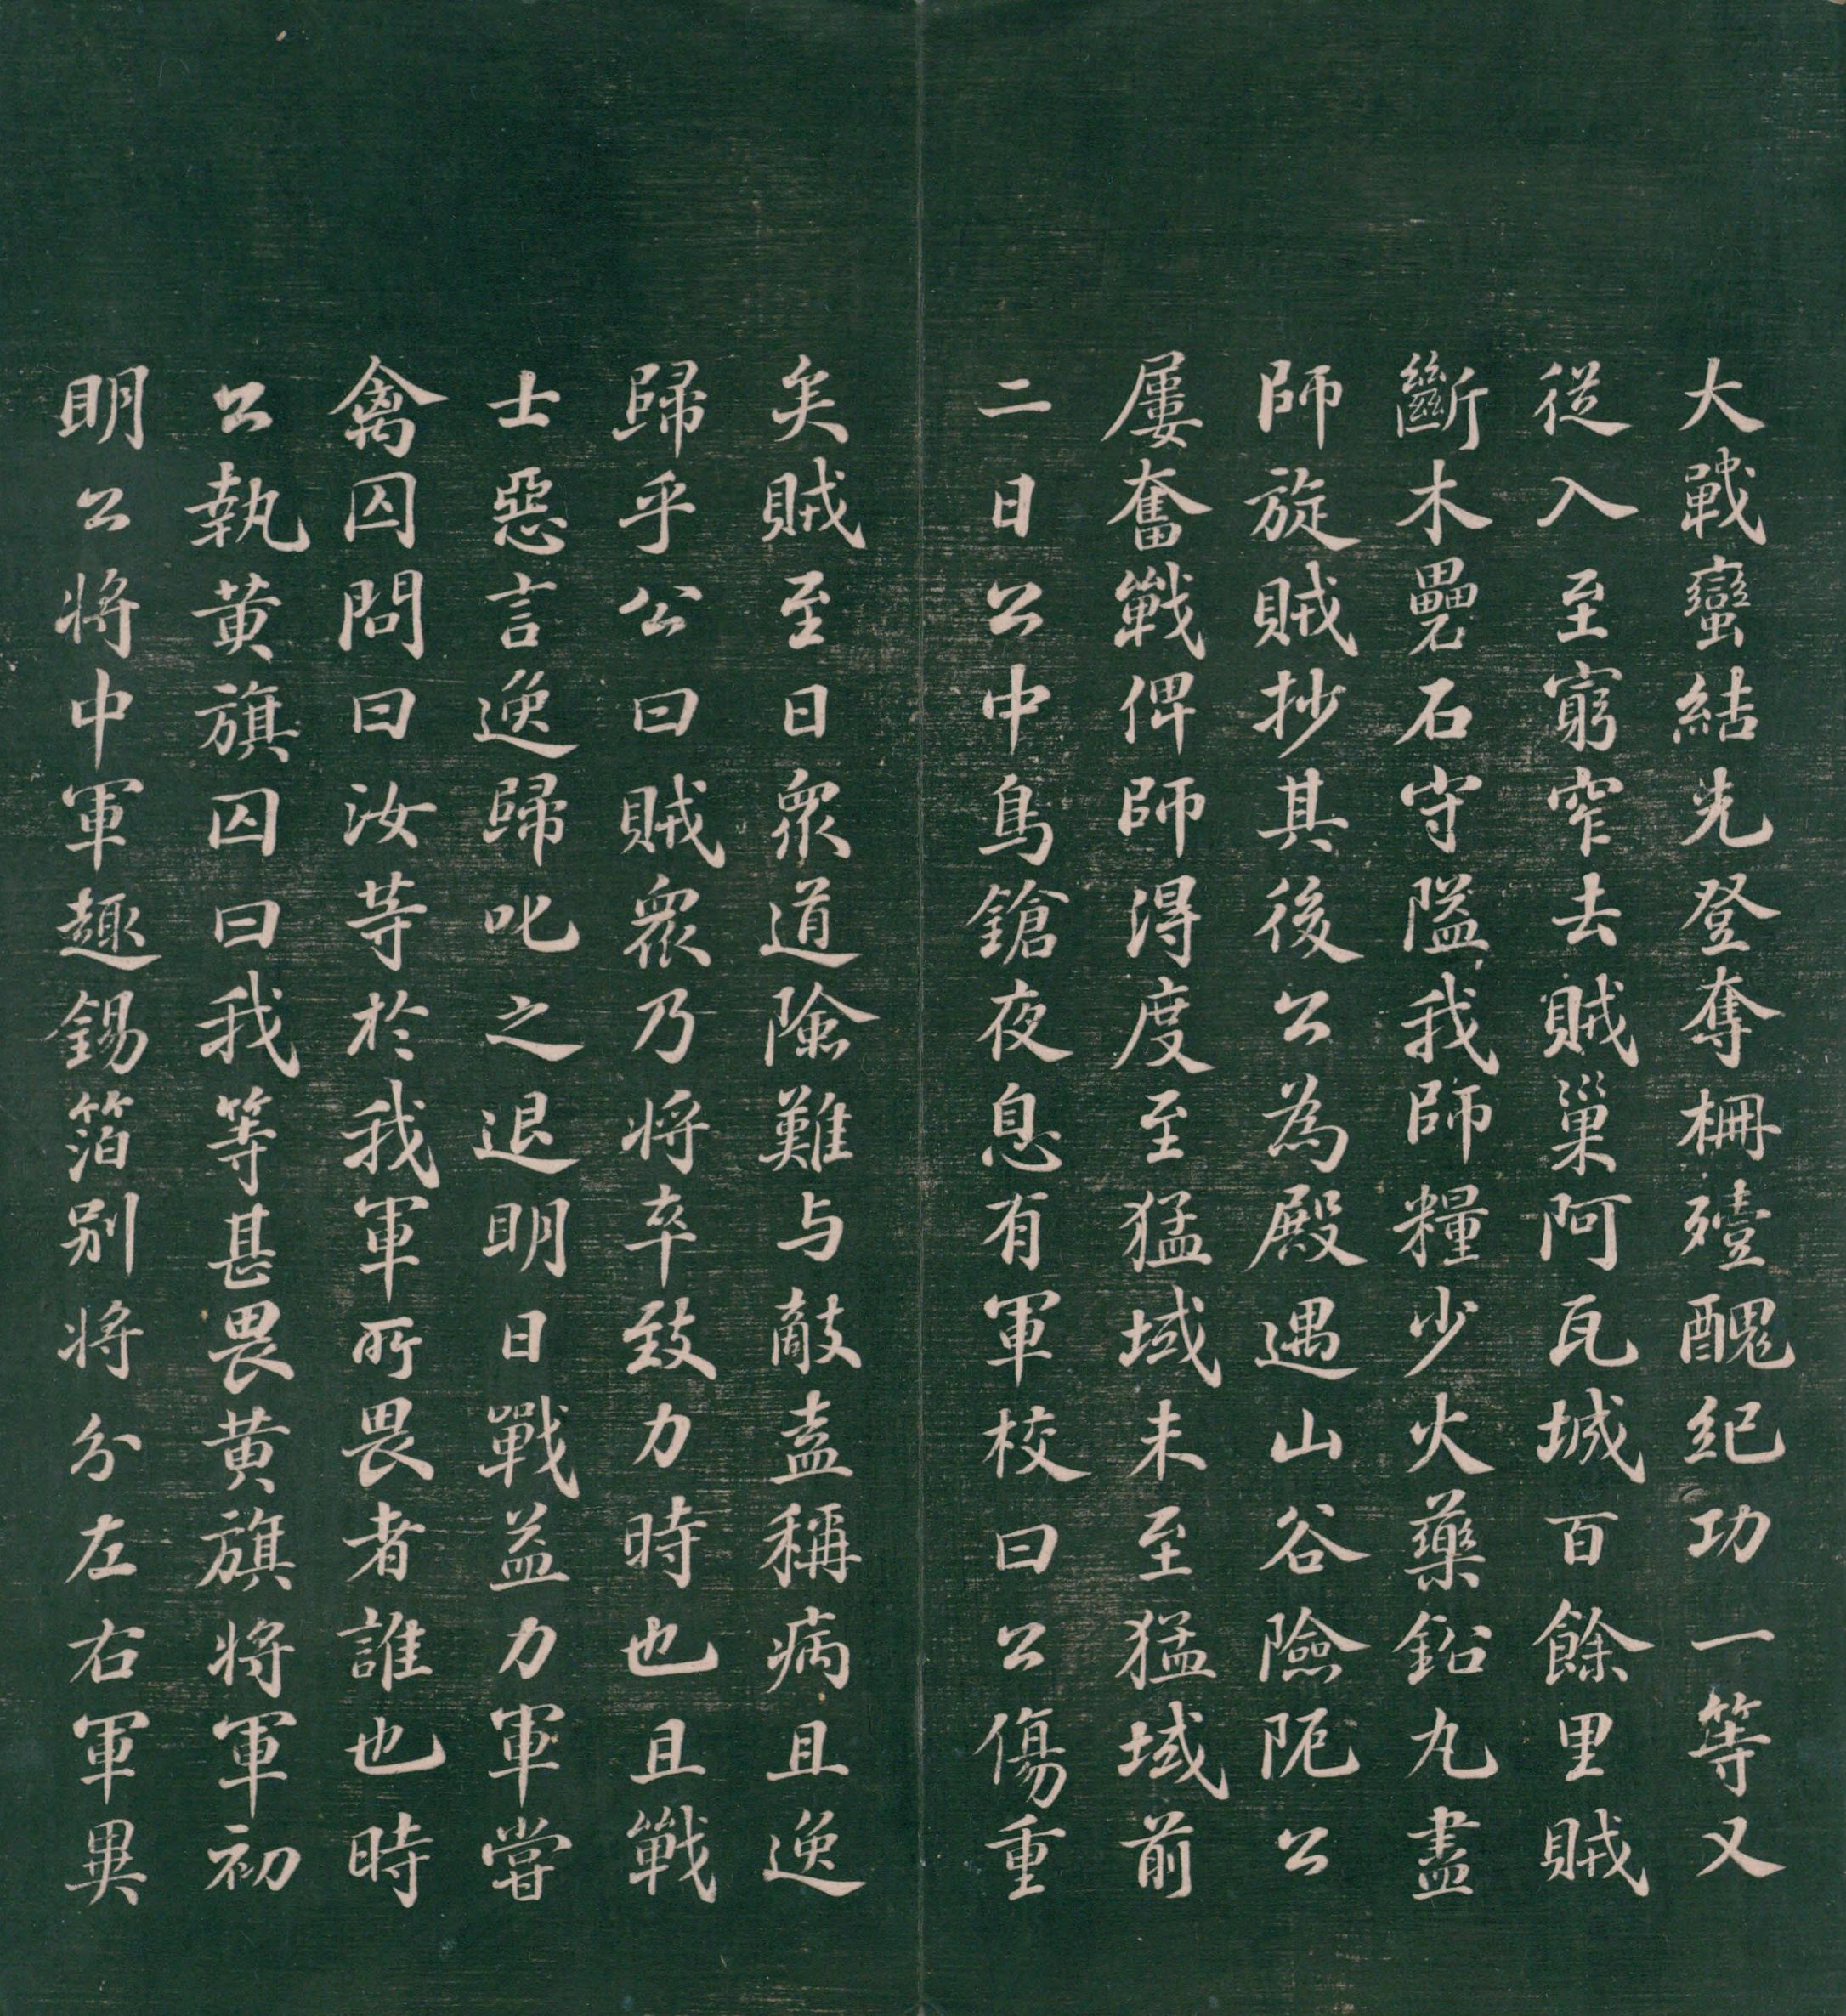 大戰蠻結先登奪柵殪醜紀功一等又
従入至窮窄去賊巢阿瓦城百餘里賊
斷木礨石守隘我師糧少火藥鉛九盡
師旋賊抄其後公為殿遇山谷險阨公
屢奮戰俾師得度至猛域未至猛域前
二日公中鳥鎗夜息有軍校曰公傷重
矣賊至日眾道險難与敵盍稱病且逸
歸乎公曰賊眾乃將卒致力時也且戰
士惡言逸歸叱之退明日戰益力軍嘗
禽囚問曰汝等於我軍所畏者誰也時
公執黃旗囚曰我等甚畏黃旗將軍初
明公將中軍趣錫箔別將分左右軍異